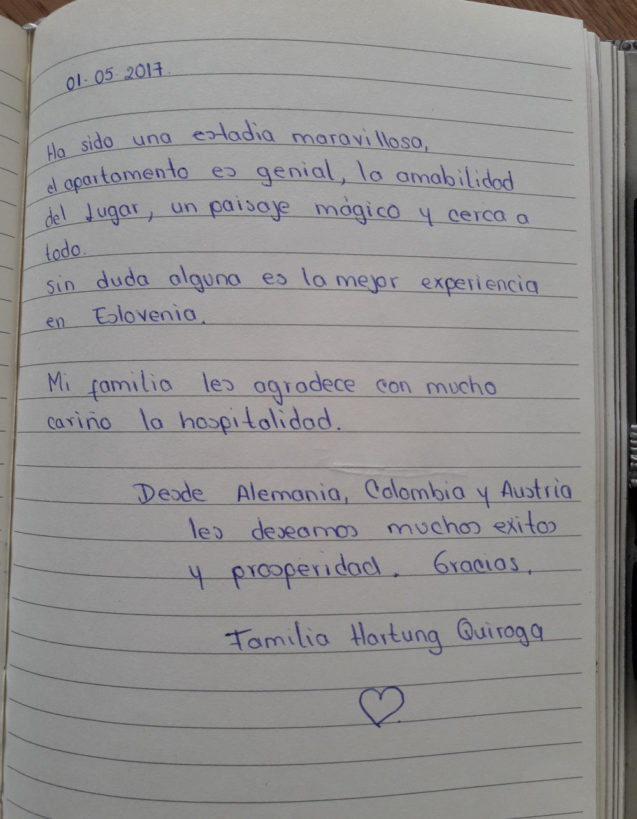 01.05.2017.
Ha sido una estadia maravillosa,
el apartamento es genial, la amabilidad
del lugar, un paisaje mágico y cerca a
todo.
sin duda alguna es la mejor experiencia
en Eslovenia.
Mi familia les agradece con mucho
cariño la hospitalidad.
Desde Alemania, Colombia y Austria
les deseamos muchos exitos
y prosperidad. Gracias.
Familia Hartung Quiroga